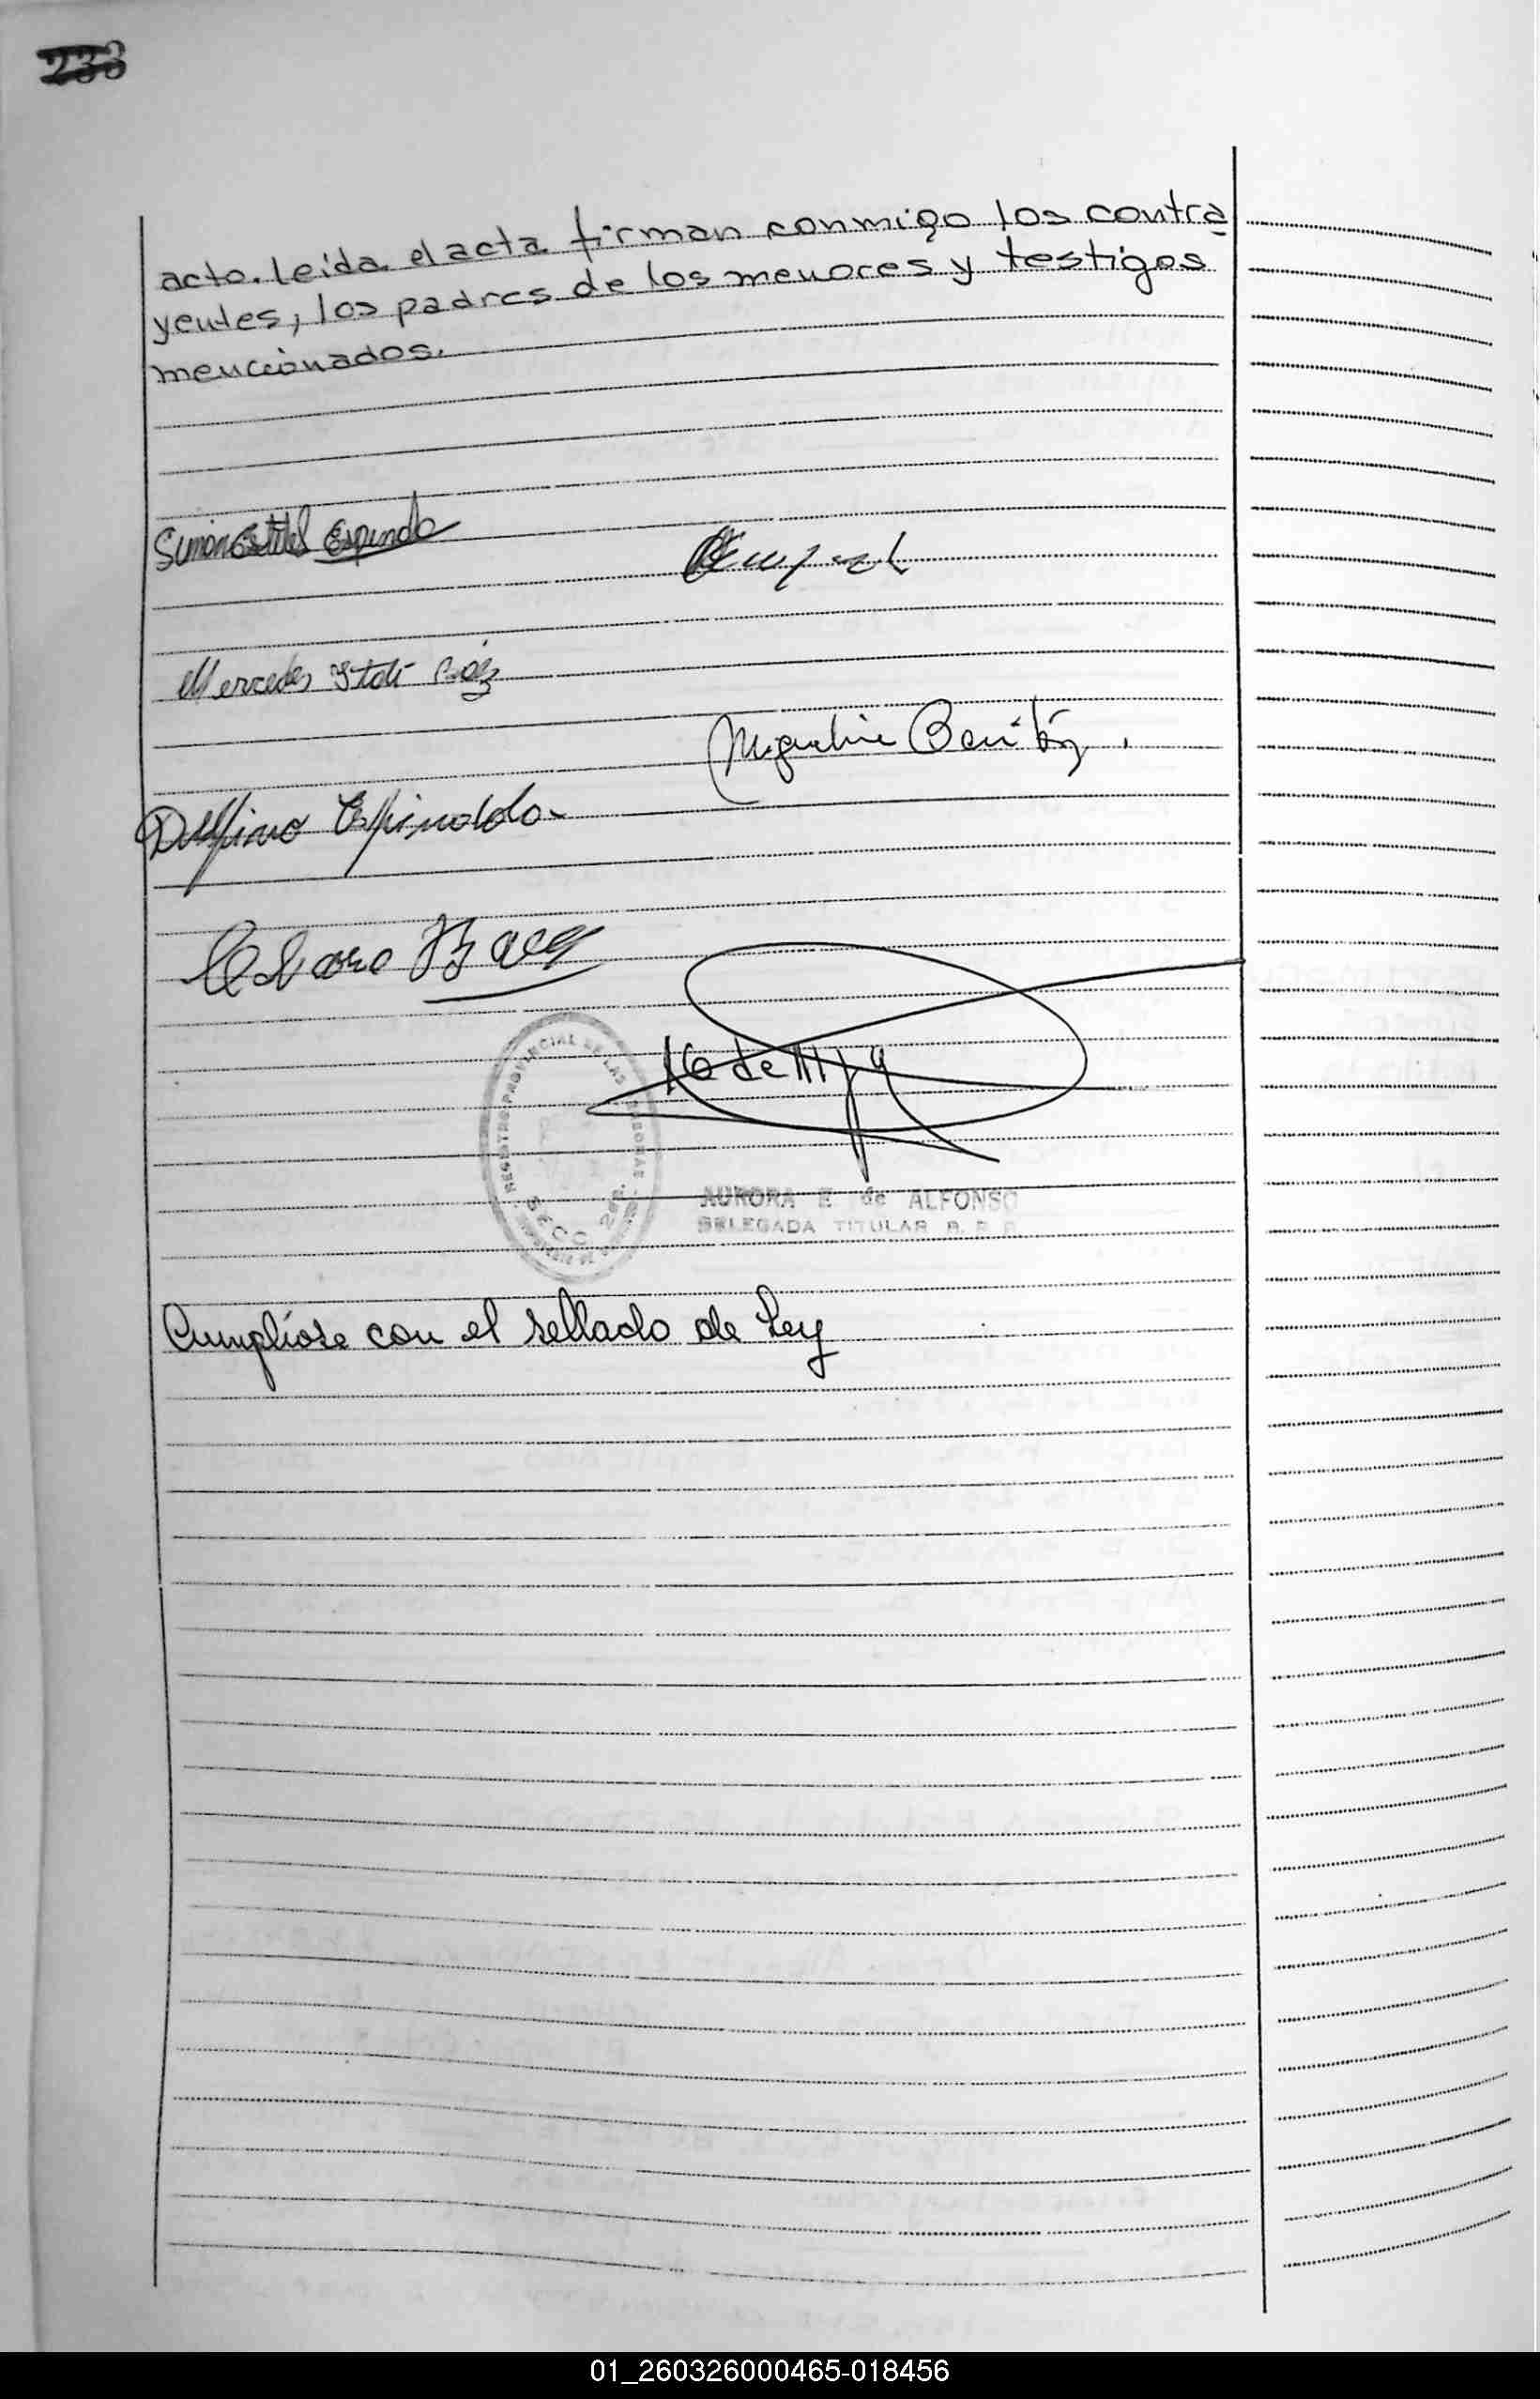 233
acto. leida el acta firman conmigo los contra
yentes, los padres de los menores y testigos
mencionados.
Simon Espindola
Mercedes Itatí Báez
Miguelina Benítez.
Delfino Espindola
Báez
REGISTRO PROVINCIAL DE LAS PERSONAS
SECC. 2da.
AURORA E de ALFONSO
DELEGADA TITULAR R. P. P.
Cumplióse con el sellado de Ley
01_260326000465-018456